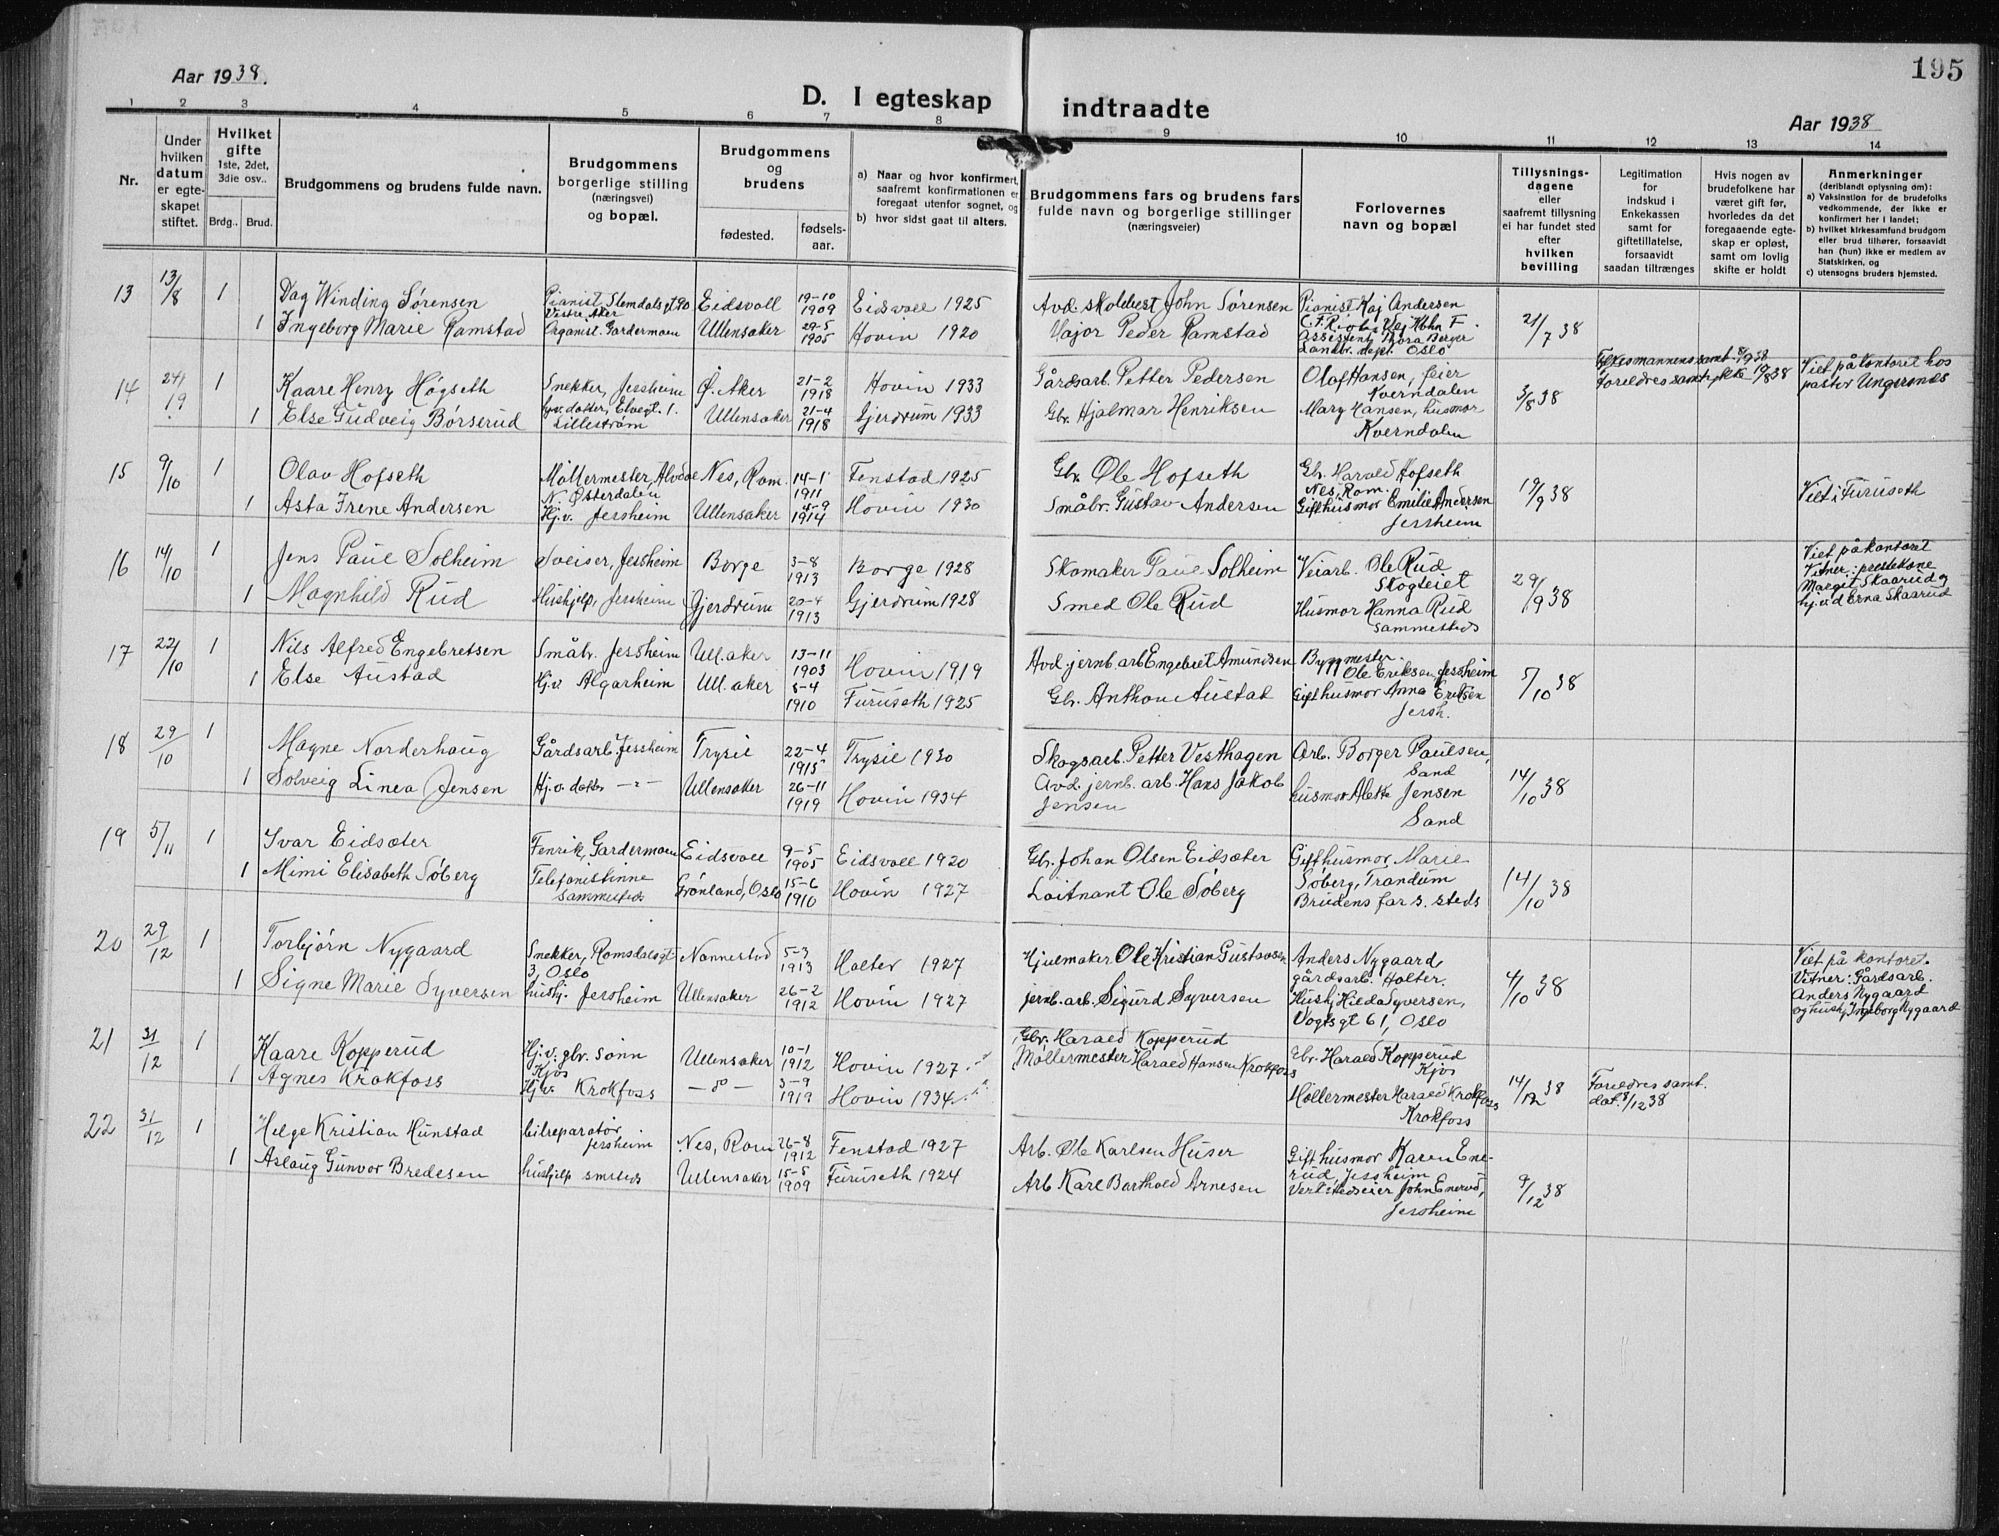 Aar 1938.
D. I egteskap indtraadte
195
Aar 1938
1 2 3 4 5 6 7 8 9 10 11 12 13 14
Nr.
Under hvilken datum er egteskapet stiftet.
Hvilket gifte 1ste, 2det, 3die osv..
Brdg.. Brud.
Brudgommens og brudens fulde navn.
Brudgommens borgerlige stilling (næringsvei) og bopæl.
Brudgommens og brudens
fødested. fødselsaar.
a) Naar og hvor konfirmert, saafremt konfirmationen er foregaat utenfor sognet, og
b) hvor sidst gaat til alters.
Brudgommens fars og brudens fars fulde navn og borgerlige stillinger (næringsveier)
Forlovernes navn og bopæl
Tillysningsdagene eller saafremt tillysning ei har fundet sted efter hvilken bevilling
Legitimation for indskud i Enkekassen samt for giftetillatelse, forsaavidt saadan tiltrænges
Hvis nogen av brudefolkene har været gift før, hvorledes da det foregaaende egteskap er opløst, samt om lovlig skifte er holdt
Anmerkninger (deriblandt oplysning om):
a) Vaksination for de brudefolks vedkommende, der ikke er konfirmert her i landet;
b) hvilket kirkesamfund brudgom eller brud tilhører, forsaavidt han (hun) ikke er medlem av Statskirken, og
c) utensogns bruders hjemsted.
13 13/8 1 Dag Winding Sørensen Pianist, Slemdalsgt 90 Vestre Aker Eidsvoll 19-10 1909 Eidsvoll 1925 Avd. skolebest. John Sørensen Pianist Kaj Andersen C.F. Vej Kbhn F. 21/7 38
1 Ingeborg Marie Ramstad Organist. Gardermoen Ullensaker 29-5 1905 Hovin 1920 Major Peder Ramstad Assistent Thora Berger Landbr. dept. Oslo
14 24/9 1 Kaare Henry Høgseth Snekker, Jessheim Ø. Aker 21-2 1918 Hovin 1933 Gårdsarb. Petter Pedersen Olaf Hansen, feier Kverndalen 3/8 38 Fylkesmannens samt. 8/9 38 Foreldres samtykke 19/8 38 Viet på kontoret hos pastor Ungersnes
1 Else Gudveig Børserud gv. datter, Elvegt. 1. Lillestrøm Ullensaker 21-4 1918 Gjerdrum 1933 Gbr. Hjalmar Henriksen Mary Hansen, husmor Kverndalen
15 9/10 1 Olav Hofseth Møllermester, Alvdal N. Østerdalen Nes, Rom. 14-1 1911 Fenstad 1925 Gbr. Ole Hofseth Gbr. Harald Hofseth Nes, Rom. 19/9 38 Viet i Furuseth
1 Asta Irene Andersen Hj.v. Jessheim Ullensaker 4-9 1914 Hovin 1930 Småbr. Gustav Andersen Gift husmor Emilie Andersen Jessheim
16 14/10 1 Jens Paul Solheim Sveiser, Jessheim Borge 3-8 1913 Borge 1928 Skomaker Paul Solheim Veiarb. Ole Rud Skogteiet 29/9 38 Viet på kontoret Vitner: prestekone Margit Skaarud og hj.v.d Erna Skaarud
1 Magnhild Rud Hushjelp, Jessheim Gjerdrum 20-4 1913 Gjerdrum 1928 Smed Ole Rud Husmor Hanna Rud sammesteds
17 22/10 1 Nils Alfred Engebretsen Småbr. Jessheim Ull.aker 13-11 1903 Hovin 1919 Avd jernb. arb Engebret Amundsen Byggmester Ole Eriksen, Jessheim 5/10 38
1 Else Austad Hj.v Algarheim Ull.aker 8-4 1910 Furuseth 1925 Gbr. Anthon Austad Gift husmor Anna Eriksen Jessh.
18 29/10 1 Magne Norderhaug Gårdsarb. Jessheim Trysil 22-4 1915 Trysil 1930 Skogsarb. Petter Vesthagen Arb. Borger Paulsen, Sand 14/10 38
1 Solveig Linea Jensen Hj.v. datter -"- Ullensaker 26-11 1919 Hovin 1934 Avd. jernb. arb. Hans Jakob Jensen husmor Alette Jensen Sand
19 5/11 1 Ivar Eidsæter Fenrik, Gardermoen Eidsvoll 9-5 1905 Eidsvoll 1920 Gbr. Johan Olsen Eidsæter Gift husmor Marie Søberg, Trandum 14/10 38
1 Mimi Elisabeth Søberg Telefonistinne sammesteds Grønland, Oslo 15-6 1910 Hovin 1927 Løitnant Ole Søberg Brudens far s. steds
20 29/12 1 Torbjørn Nygaard Snekker, Romsdalsgt 3, Oslo Nannestad 5-3 1913 Holter 1927 Hjulmaker Ole Kristian Gustavsen Anders Nygaard, gårdsarb. Holter. 4/10 38 Viet på kontoret. Vitner: Gårdsarb. Anders Nygaard og hushj Ingeborg Nygaard
1 Signe Marie Syversen hushj. Jessheim Ullensaker 26-2 1912 Hovin 1927 jernb. arb. Sigurd Syversen Hushj Hilda Syversen, Vogtsgt 61, Oslo
21 31/12 1 Kaare Kopperud Hj.v. gbr. sønn Kjos Ullensaker 10-1 1912 Hovin 1927 Gbr. Harald Kopperud Gbr. Harald Kopperud Kjos 14/12 38 Foreldres samt. dat. 8/12 38
1 Agnes Krokfoss Hj.v. Krokfoss - do - 3-9 1919 Hovin 1934 Møllermester Harald Hansen Krokfoss Møllermester Harald Krokfoss Krokfoss
22 31/12 1 Helge Kristian Hunstad bilreparatør Jessheim Nes, Rom 26-8 1912 Fenstad 1927 Arb. Ole Karlsen Huser Gift husmor Karen Enerud, Jessheim 9/12 38
1 Aslaug Gunvor Bredesen hushjelp smsteds Ullensaker 15-5 1909 Furuseth 1924 Arb Karl Barthold Arnesen Verkstedseier John Enerud, Jessheim